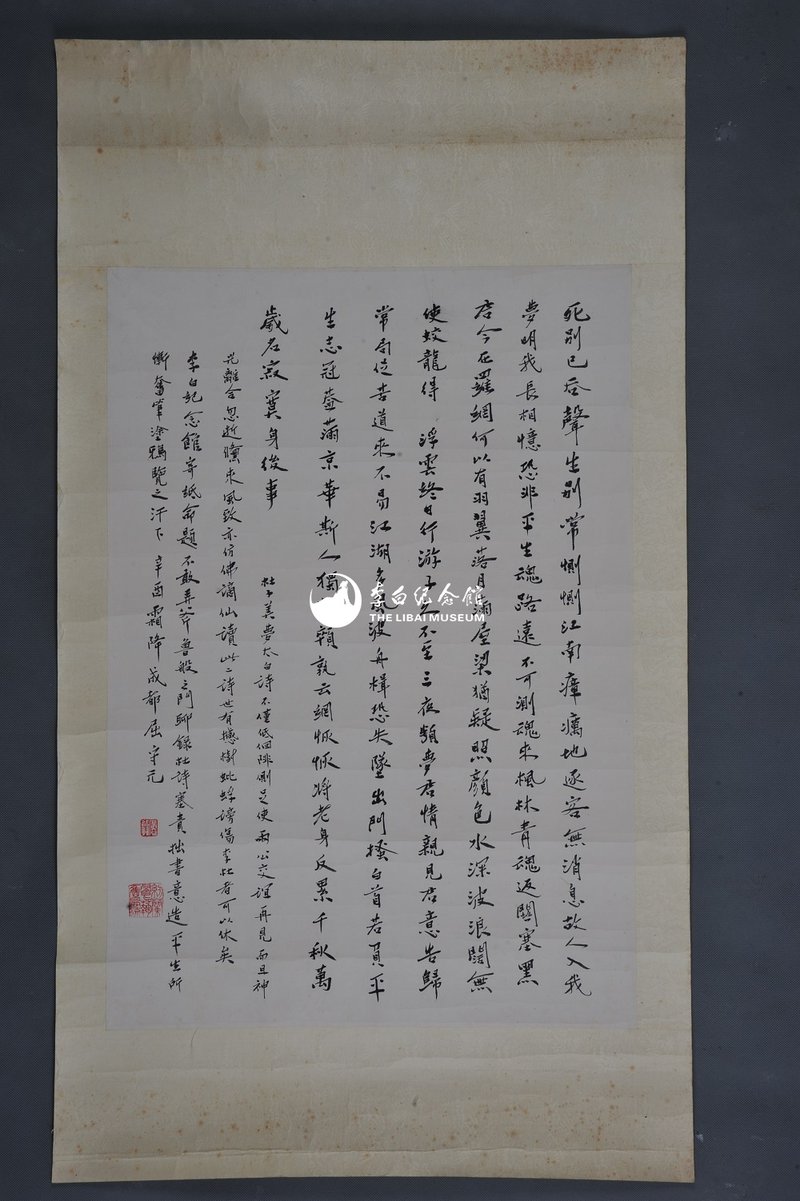 死別已吞聲生別常惻惻江南瘴癘地逐客無消息故人入我
夢明我長相憶恐非平生魂路遠不可測魂來楓林青魂返關塞黑
君今在羅網何以有羽翼落月滿屋梁猶疑照顏色水深波浪闊無
使蛟龍得 浮雲終日行游子久不至三夜頻夢君情親見君意告歸
常局促苦道來不易江湖多風波舟楫恐失墜出門搔白首若負平
生志冠蓋滿京華斯人獨顇孰云網恢恢將老身反累千秋萬
歲名寂寞身後事
杜子美夢太白詩不僅低佪悱惻足使兩公交誼再見而且神
光離合忽逝儵來風致亦仿佛謫仙讀此二詩世有撼樹蚍蜉謗傷李杜者可以休矣
李白紀念館寄紙命題不敢弄斧魯般之門聊錄杜詩塞責拙書意造平生所
慚奮筆塗鴉覽之汗下 辛酉霜降成都屈守元
李白纪念馆
THE LIBAI MUSEUM